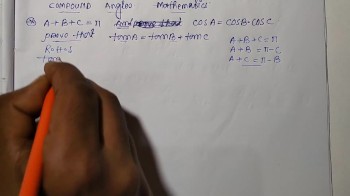 COMPOUND Angles Mathematics
A+B+C=π And COSA = COSB·COSC
prove that tanB = tanB + tanC
A+B+C=π
R.H.S
A+B = π-C
tan
A+C = π-B